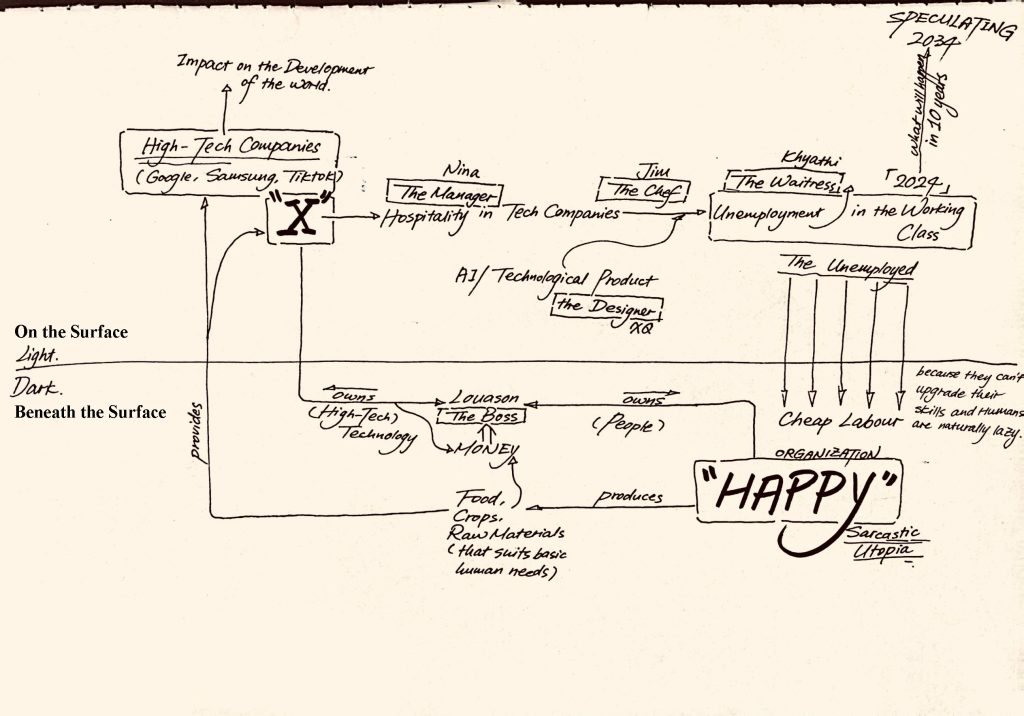 SPECULATING
2034
what will happen
in 10 years
Impact on the Development
of the world.
High-Tech Companies
(Google, Samsung, Tiktok)
"X"
Nina
The Manager
Hospitality in Tech Companies
Jim
The Chef
Khyathi
The Waitress
「2024」
Unemployment in the Working
Class
AI/Technological Product
the Designer
XQ
The Unemployed
On the Surface
Light.
Dark.
Beneath the Surface
provides
owns
(High-Tech)
Technology
Louason
The Boss
MONEY
owns
(People)
Cheap Labour
because they can't
upgrade their
skills and Humans
are naturally lazy.
ORGANIZATION
"HAPPY"
Sarcastic
Utopia
produces
Food,
Crops,
Raw Materials
(that suits basic
human needs)